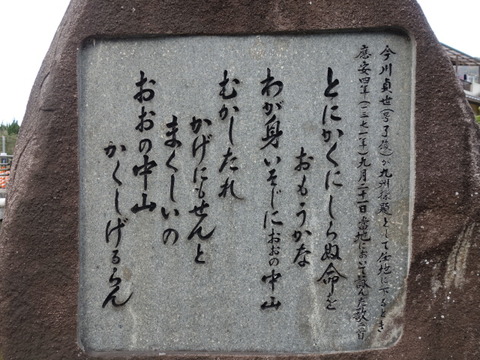 今川貞世(号了俊)が九州探題として任地に下るとき
應安四年(一三七一年)九月二十一日当地において詠んだ歌二首
とにかくにしらぬ命を
おもうかな
わが身いそじにおおの中山
むかしたれ
かげにもせんと
まくしいの
おおの中山
かくしげるらん